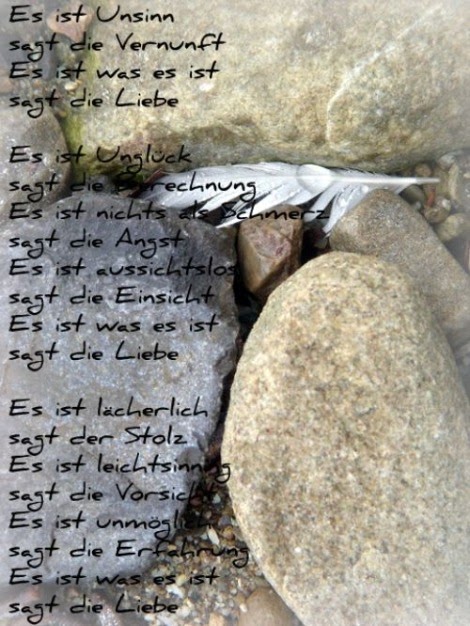 Es ist Unsinn
sagt die Vernunft
Es ist was es ist
sagt die Liebe
Es ist Unglück
sagt die Berechnung
Es ist nichts als Schmerz
sagt die Angst
Es ist aussichtslos
sagt die Einsicht
Es ist was es ist
sagt die Liebe
Es ist lächerlich
sagt der Stolz
Es ist leichtsinnig
sagt die Vorsicht
Es ist unmöglich
sagt die Erfahrung
Es ist was es ist
sagt die Liebe